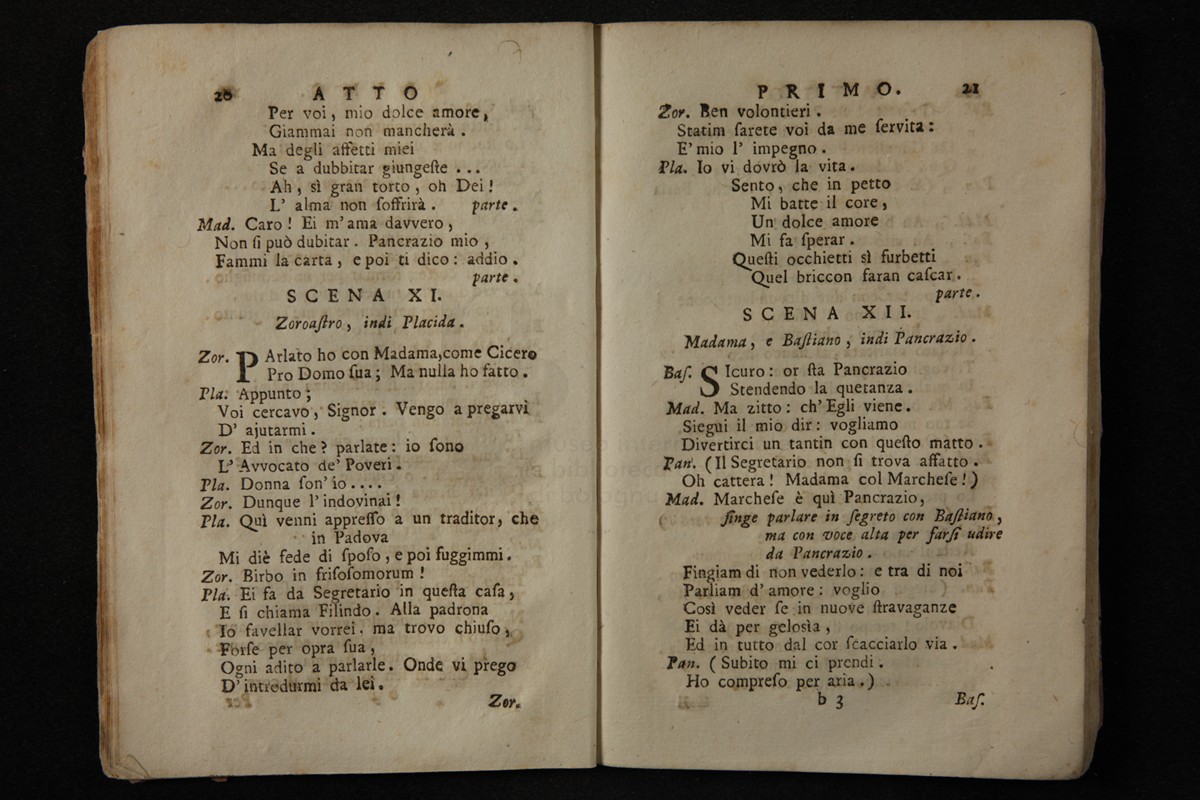 20 ATTO
Per voi, mio dolce amore,
Giammai non mancherà.
Ma degli affetti miei
Se a dubbitar giungeſte ...
Ah, sì gran torto, oh Dei!
L' alma non ſoffrirà. parte.
Mad. Caro! Ei m'ama davvero,
Non ſi può dubitar. Pancrazio mio,
Fammi la carta, e poi ti dico: addio.
parte.
SCENA XI.
Zoroaſtro, indi Placida.
Zor. PArlato ho con Madama,come Cicero
Pro Domo ſua; Ma nulla ho fatto.
Pla. Appunto;
Voi cercavo, Signor. Vengo a pregarvi
D' ajutarmi.
Zor. Ed in che? parlate: io ſono
L' Avvocato de' Poveri.
Pla. Donna ſon' io....
Zor. Dunque l' indovinai!
Pla. Quì venni appreſſo a un traditor, che
in Padova
Mi diè fede di ſpoſo, e poi fuggimmi.
Zor. Birbo in friſoſomorum!
Pla. Ei fa da Segretario in queſta caſa,
E ſi chiama Filindo. Alla padrona
Io favellar vorrei, ma trovo chiuſo,
Forſe per opra ſua,
Ogni adito a parlarle. Onde vi prego
D' intredurmi da lei.
Zor.
PRIMO. 21
Zor. Ben volontieri.
Statim ſarete voi da me ſervita:
E' mio l' impegno.
Pla. Io vi dovrò la vita.
Sento, che in petto
Mi batte il core,
Un dolce amore
Mi fa ſperar.
Queſti occhietti sì furbetti
Quel briccon faran caſcar.
parte.
SCENA XII.
Madama, e Baſtiano, indi Pancrazio.
Baſ. SIcuro: or ſta Pancrazio
Stendendo la quetanza.
Mad. Ma zitto: ch' Egli viene.
Siegui il mio dir: vogliamo
Divertirci un tantin con queſto matto.
Pan. (Il Segretario non ſi trova affatto.
Oh cattera! Madama col Marcheſe!)
Mad. Marcheſe è quì Pancrazio,
finge parlare in ſegreto con Baſtiano,
ma con voce alta per farſi udire
da Pancrazio.
Fingiam di non vederlo: e tra di noi
Parliam d' amore: voglio
Così veder ſe in nuove ſtravaganze
Ei dà per gelosìa,
Ed in tutto dal cor ſcacciarlo via.
Pan. (Subito mi ci prendi.
Ho compreſo per aria.)
b 3 Baſ.